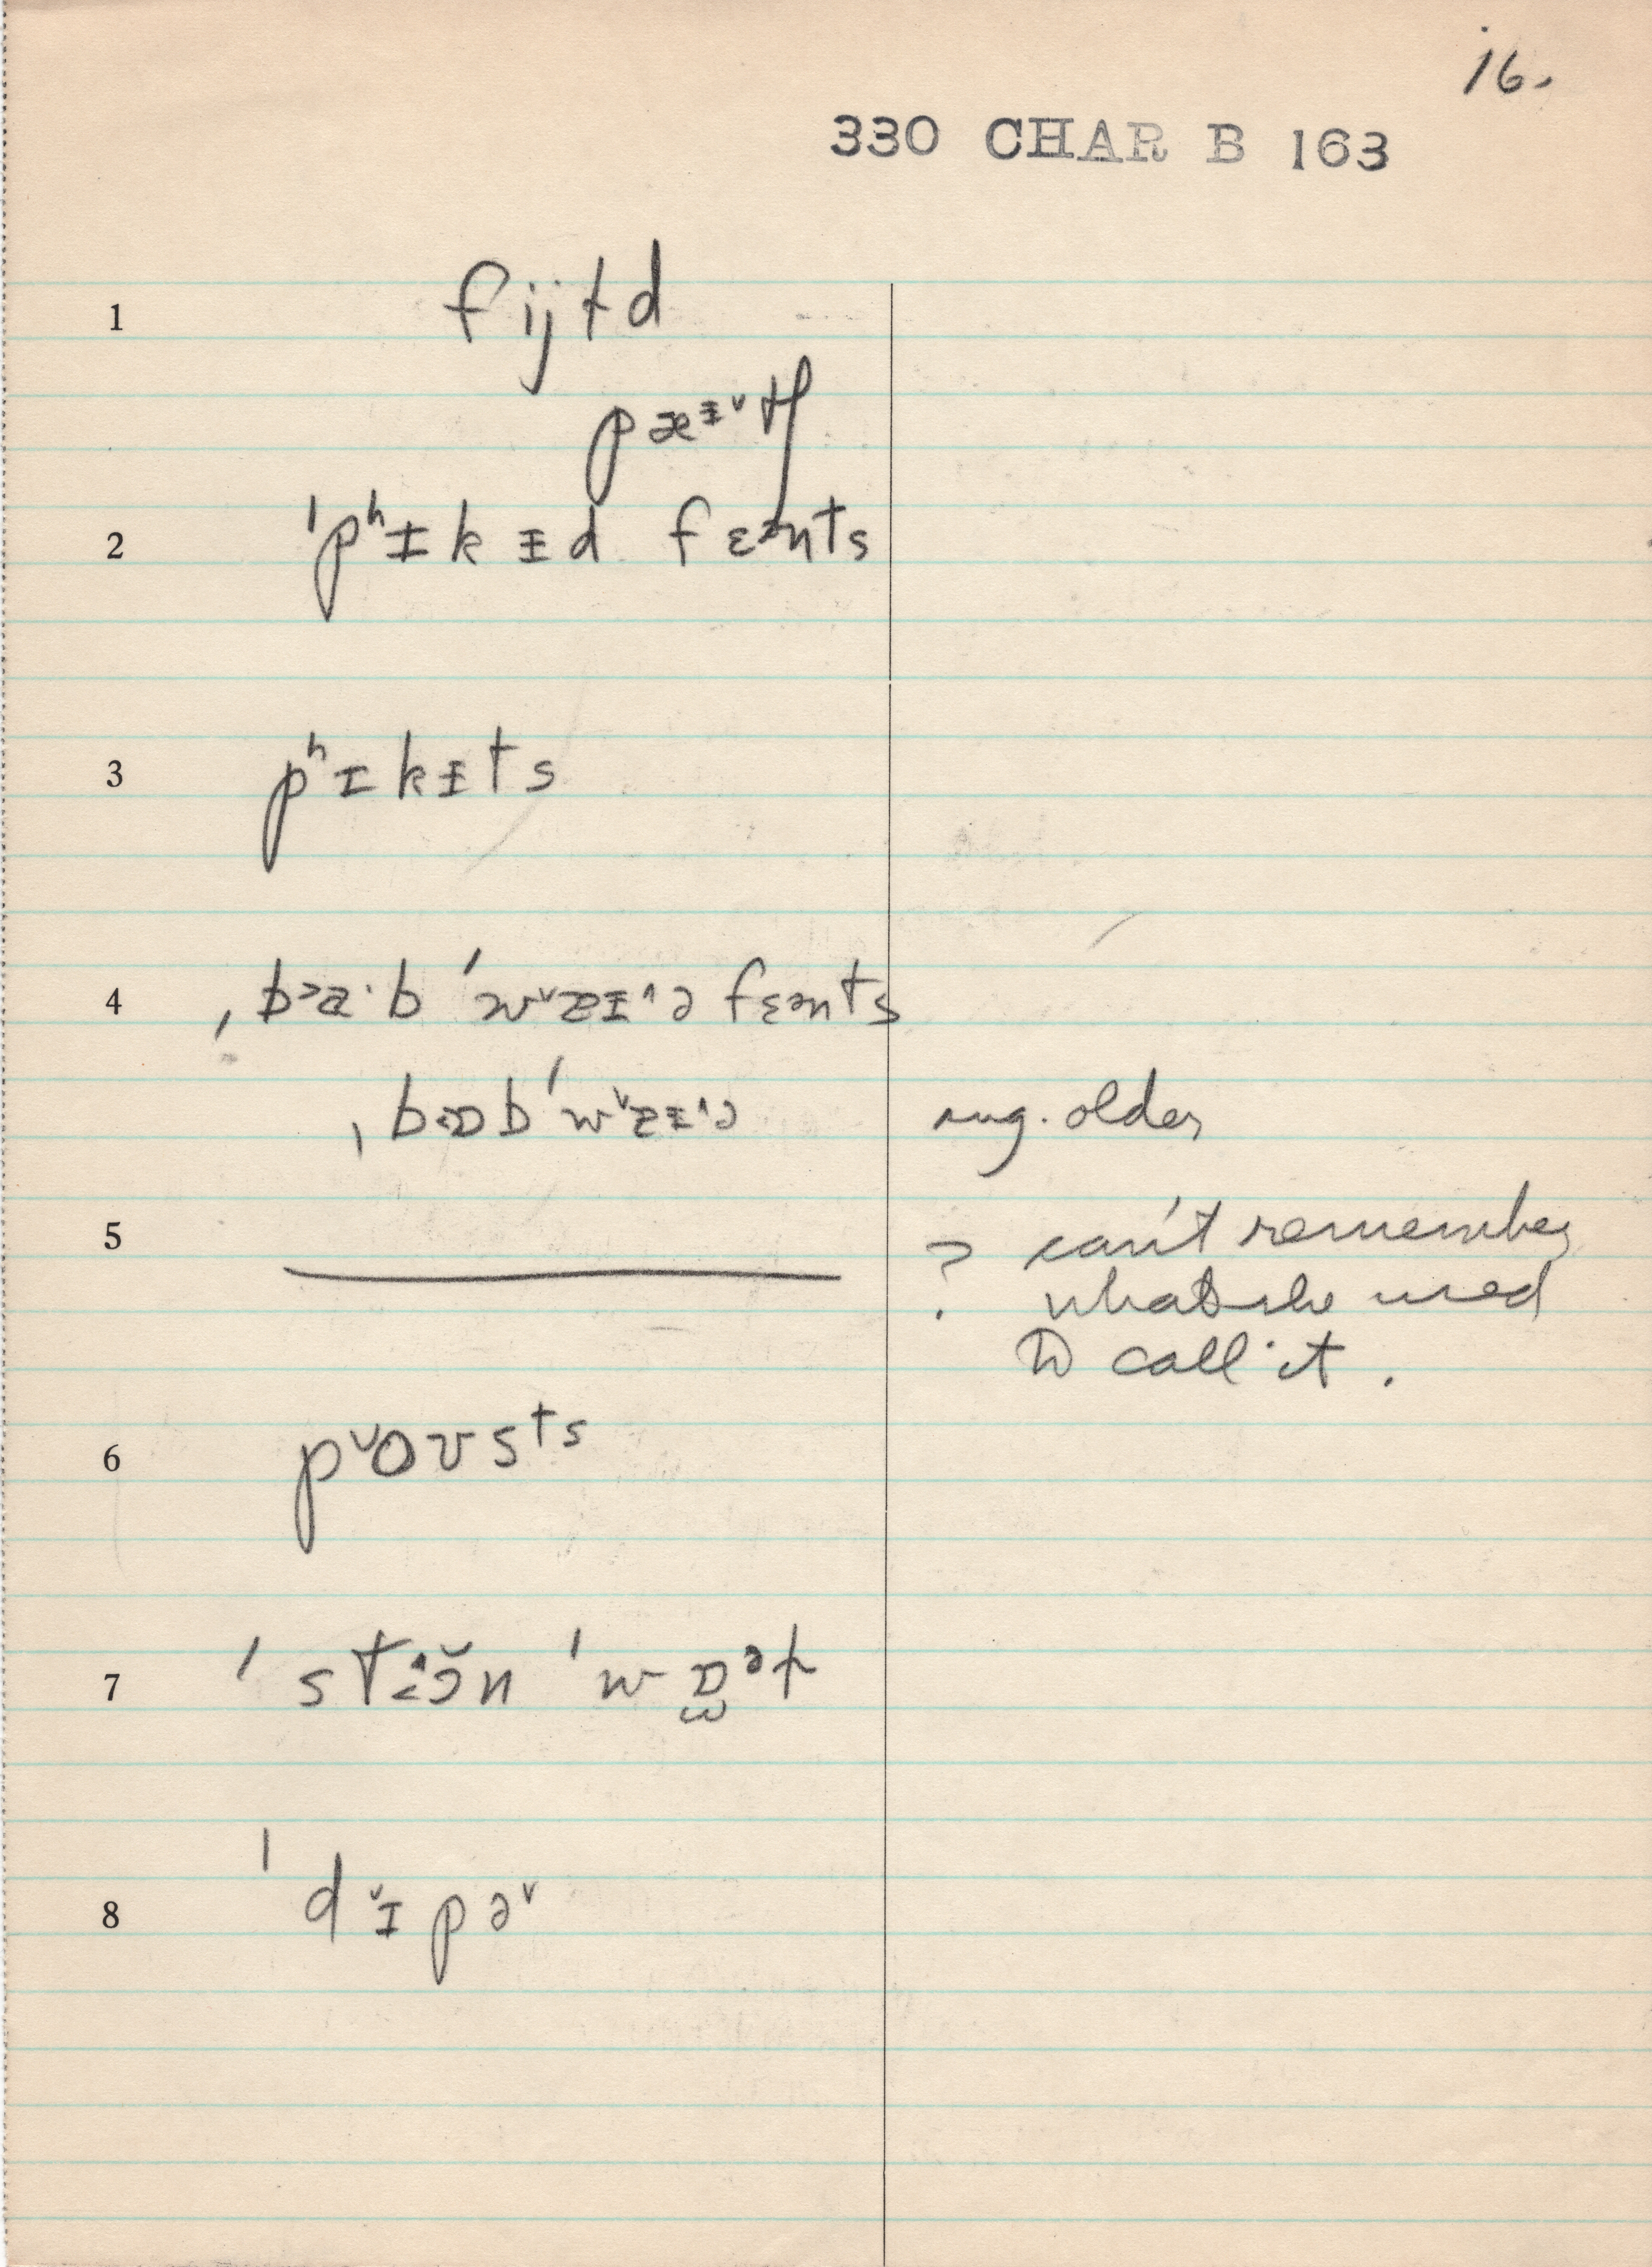 16.
330 CHAR B 163
1 fijɫd
pæᵻ˅tʃ
2 ˈpʰɪkᵻd fɛənts
3 pʰɪkᵻts
4 ˌb>a·b ˈw˅æᵻ^ə fɛənts
ˌbɒb ˈw˅æᵻ^ə sug. older
5 ? can't remember
what she used
to call it.
6 p˅oʊsts
7 ˈstɔ̆n ˈwɒᵊɫ
8 ˈd˅ɪpə˅